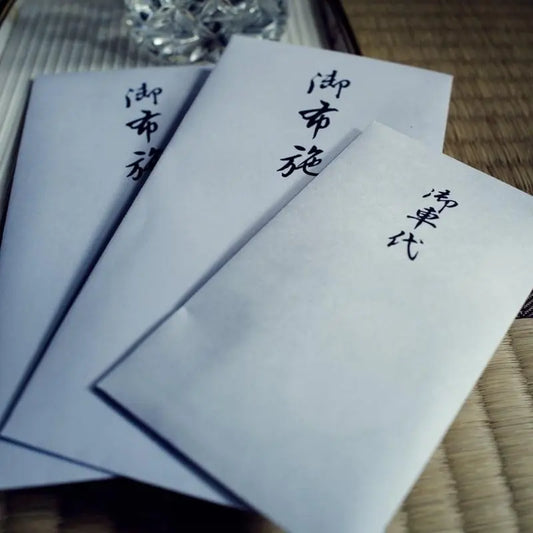 御布施
御布施
御車代